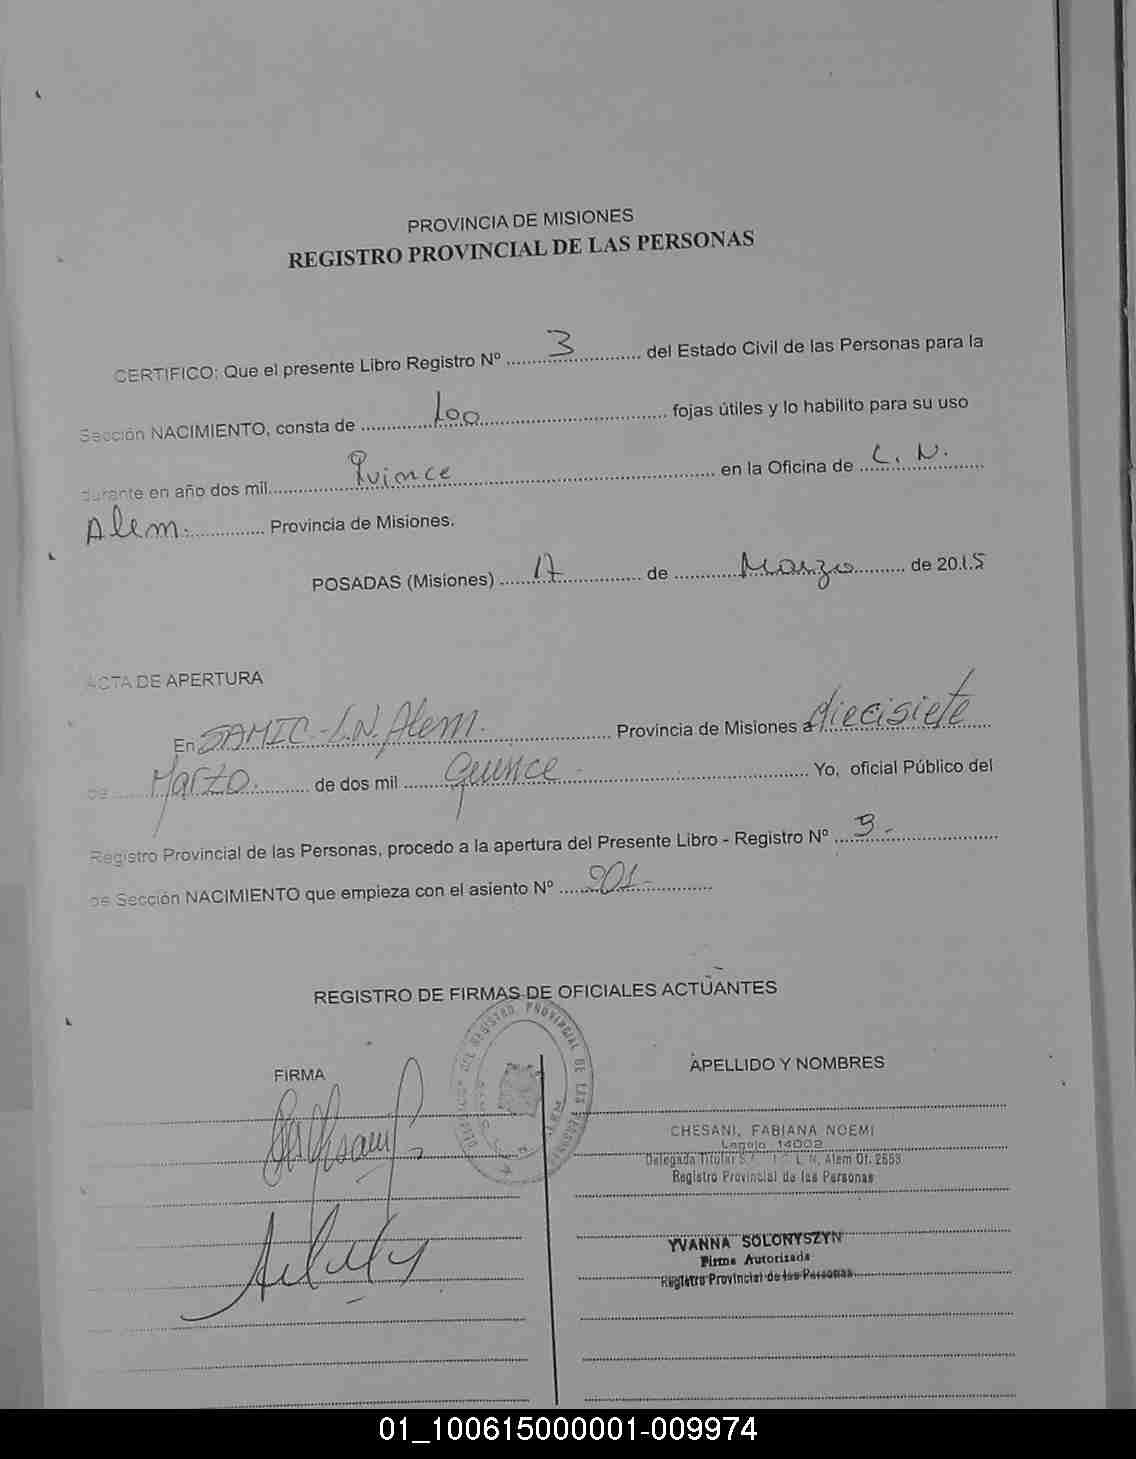 PROVINCIA DE MISIONES
REGISTRO PROVINCIAL DE LAS PERSONAS
CERTIFICO: Que el presente Libro Registro Nº 3 del Estado Civil de las Personas para la
Sección NACIMIENTO, consta de 100 fojas útiles y lo habilito para su uso
durante en año dos mil Quince en la Oficina de L. N.
Alem. Provincia de Misiones.
POSADAS (Misiones) 17 de Marzo de 2015
ACTA DE APERTURA
En SAMIC - L.N. Alem. Provincia de Misiones a diecisiete
de Marzo. de dos mil quince - Yo, oficial Público del
Registro Provincial de las Personas, procedo a la apertura del Presente Libro - Registro Nº 3 -
de Sección NACIMIENTO que empieza con el asiento Nº 201 -
REGISTRO DE FIRMAS DE OFICIALES ACTUANTES
DEL REGISTRO PROVINCIAL DE LAS PERSONAS
FIRMA
APELLIDO Y NOMBRES
CHESANI, FABIANA NOEMI
Legajo 14002
Delegada Titular L. N. Alem Of. 2653
Registro Provincial de las Personas
YVANNA SOLONYSZYN
Firma Autorizada
Registro Provincial de las Personas
01_100615000001-009974